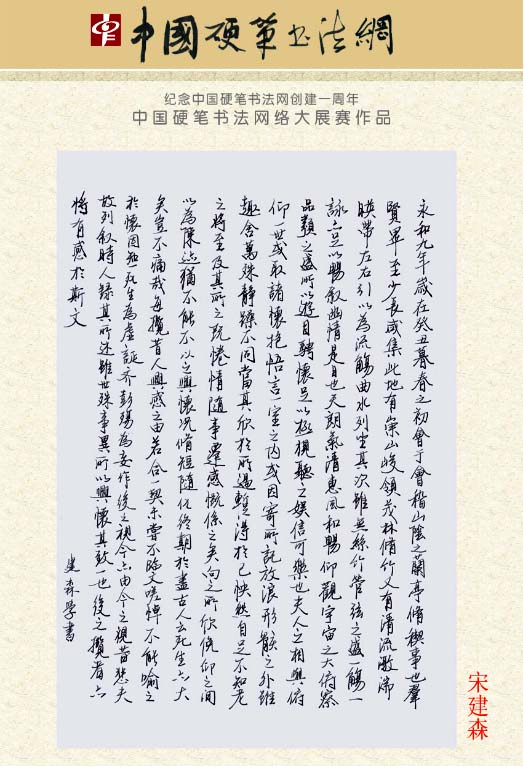 中國硬筆书法網
纪念中国硬笔书法网创建一周年
中国硬笔书法网络大展赛作品
永和九年歲在癸丑暮春之初會于會稽山陰之蘭亭脩禊事也羣
賢畢至少長咸集此地有崇山峻領茂林脩竹又有清流激湍
暎帶左右引以為流觴曲水列坐其次雖無絲竹管弦之盛一觴一
詠亦足以暢叙幽情是日也天朗氣清惠風和暢仰觀宇宙之大俯察
品類之盛所以遊目騁懷足以極視聽之娛信可樂也夫人之相與俯
仰一世或取諸懷抱悟言一室之內或因寄所託放浪形骸之外雖
趣舍萬殊靜躁不同當其欣於所遇暫得於己怏然自足不知老
之將至及其所之既惓情隨事遷感慨係之矣向之所欣俛仰之間
以為陳迹猶不能不以之興懷况脩短隨化終期於盡古人云死生亦大
矣豈不痛哉每攬昔人興感之由若合一契未嘗不臨文嗟悼不能喻之
於懷固知一死生為虛誕齊彭殤為妄作後之視今亦由今之視昔悲夫
故列叙時人錄其所述雖世殊事異所以興懷其致一也後之攬者亦
將有感於斯文
建森學書
宋建森